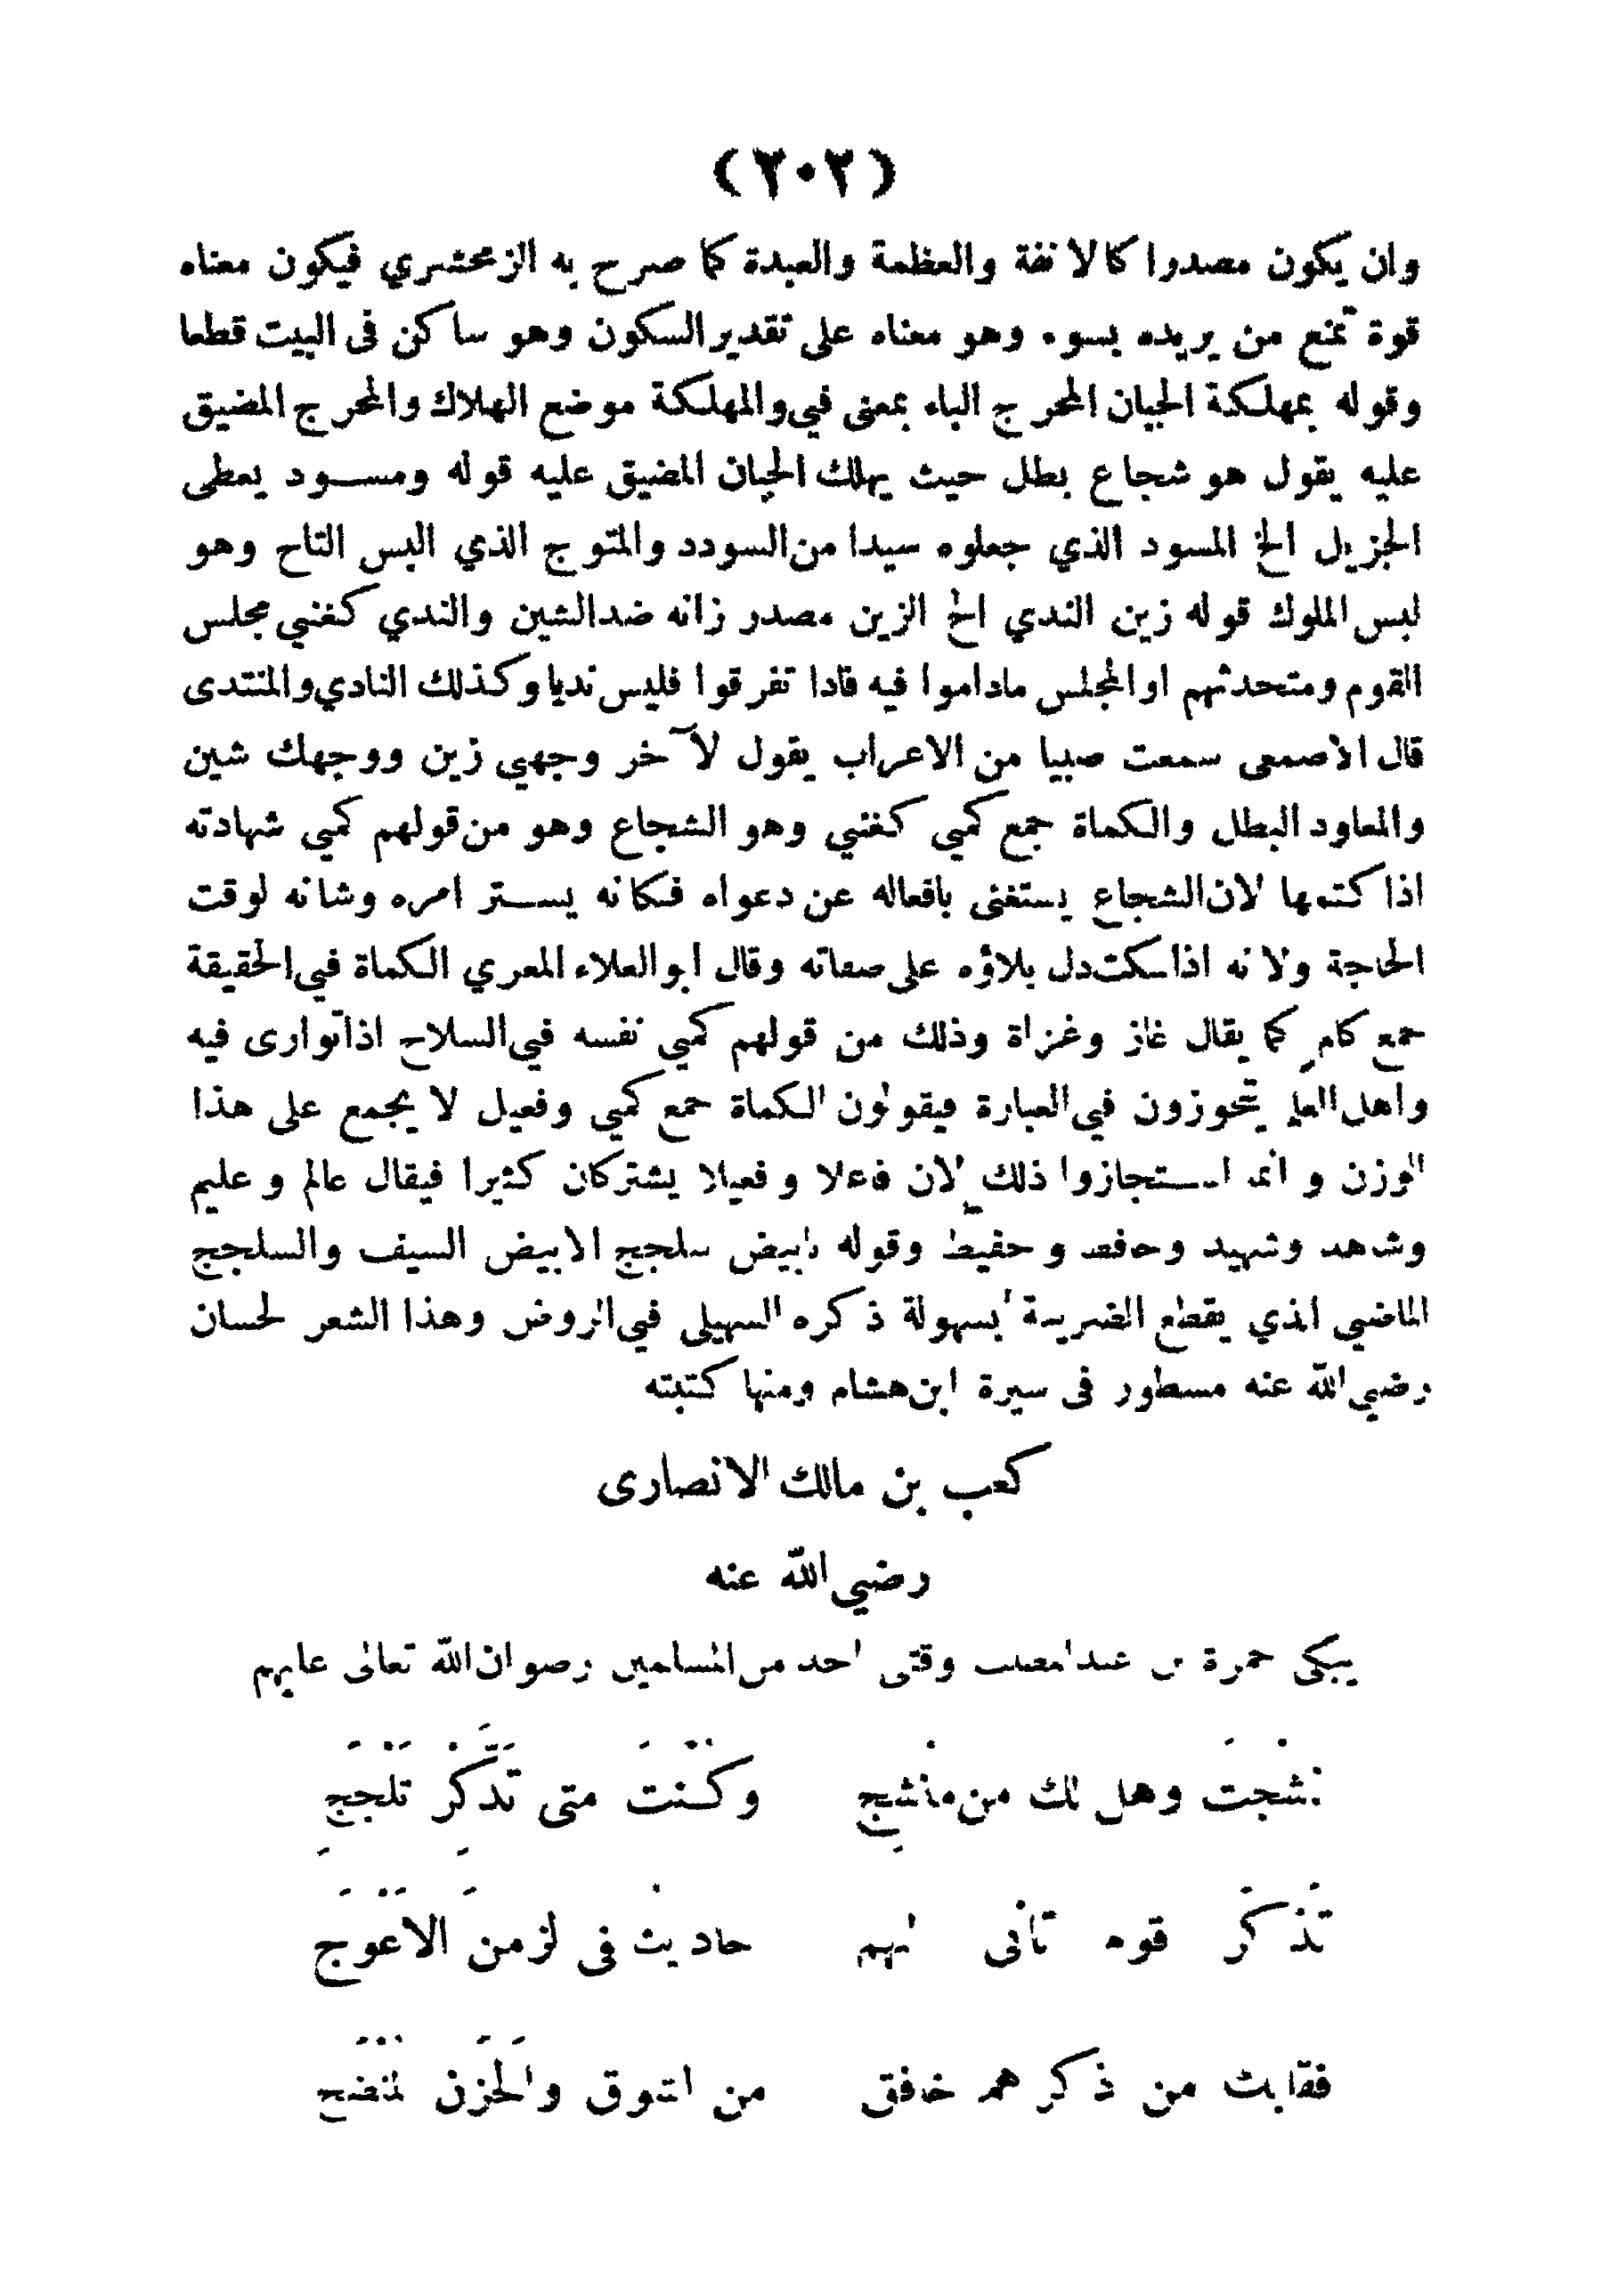 (٢٠٢)
وان يكون مصدرا كالانفة والعظمة والعبدة كما صرح به الزمخشري فيكون معناه
قوة تمنع من يريده بسوء وهو معناه على تقدير السكون وهو ساكن فى البيت قطعا
وقوله بمهلكة الجبان المحرج الباء بمعنى في والمهلكة موضع الهلاك والمحرج المضيق
عليه يقول هو شجاع بطل حيث يهلك الجبان المضيق عليه قوله ومسود يعطى
الجزيل الخ المسود الذي جعلوه سيدا من السودد والمتوج الذي البس التاج وهو
لبس الملوك قوله زين الندي الخ الزين مصدر زانه ضد الشين والندي كغني مجلس
القوم ومتحدثهم او المجلس ماداموا فيه فاذا تفرقوا فليس نديا وكذلك النادي والمنتدى
قال الاصمعى سمعت صبيا من الاعراب يقول لآخر وجهي زين ووجهك شين
والمعاود البطل والكماة جمع كمي كغني وهو الشجاع وهو من قولهم كمي شهادته
اذا كتمها لان الشجاع يستغنى بافعاله عن دعواه فكانه يستر امره وشانه لوقت
الحاجة ولانه اذا سكت دل بلاؤه على صفاته وقال ابو العلاء المعري الكماة في الحقيقة
جمع كامٍ كما يقال غاز وغزاة وذلك من قولهم كمي نفسه في السلاح اذا توارى فيه
واهل العلم يتجوزون في العبارة فيقولون الكماة جمع كمي وفعيل لا يجمع على هذا
الوزن وانما استجازوا ذلك لان فاعلا وفعيلا يشتركان كثيرا فيقال عالم وعليم
وشاهد وشهيد وحافظ وحفيظ وقوله بابيض سلجج الابيض السيف والسلجج
الماضي الذي يقطع الضريبة بسهولة ذكره السهيلى في الروض وهذا الشعر لحسان
رضي الله عنه مسطور فى سيرة ابن هشام ومنها كتبته
كعب بن مالك الانصارى
رضي الله عنه
يبكى حمزة بن عبد المطلب وقتلى احد من المسلمين رضوان الله تعالى عليهم
نَشَجْتَ وهل لك من مَنْشِجِ وكُنْتَ متى تَذَّكِرْ تَلْجَجِ
تَذَكُّرَ قوم تانى لهم احاديث فى الزمن الاَعْوَجِ
فقلبك من ذكرهم خافق من الشوق والحَزَنِ المُنْضِجِ